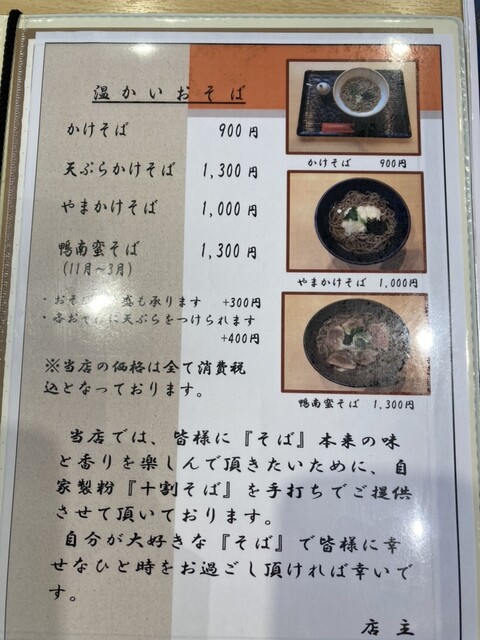 温かいおそば
かけそば 900円
天ぷらかけそば 1,300円
やまかけそば 1,000円
鴨南蛮そば 1,300円
(11月～3月)
・おそば 盛も承ります +300円
・各おそばに天ぷらをつけられます
+400円
※当店の価格は全て消費税
込となっております。
かけそば 900円
やまかけそば 1,000円
鴨南蛮そば 1,300円
当店では、皆様に『そば』本来の味
と香りを楽しんで頂きたいために、自
家製粉『十割そば』を手打ちでご提供
させて頂いております。
自分が大好きな『そば』で皆様に幸
せなひと時をお過ごし頂ければ幸いで
す。
店主